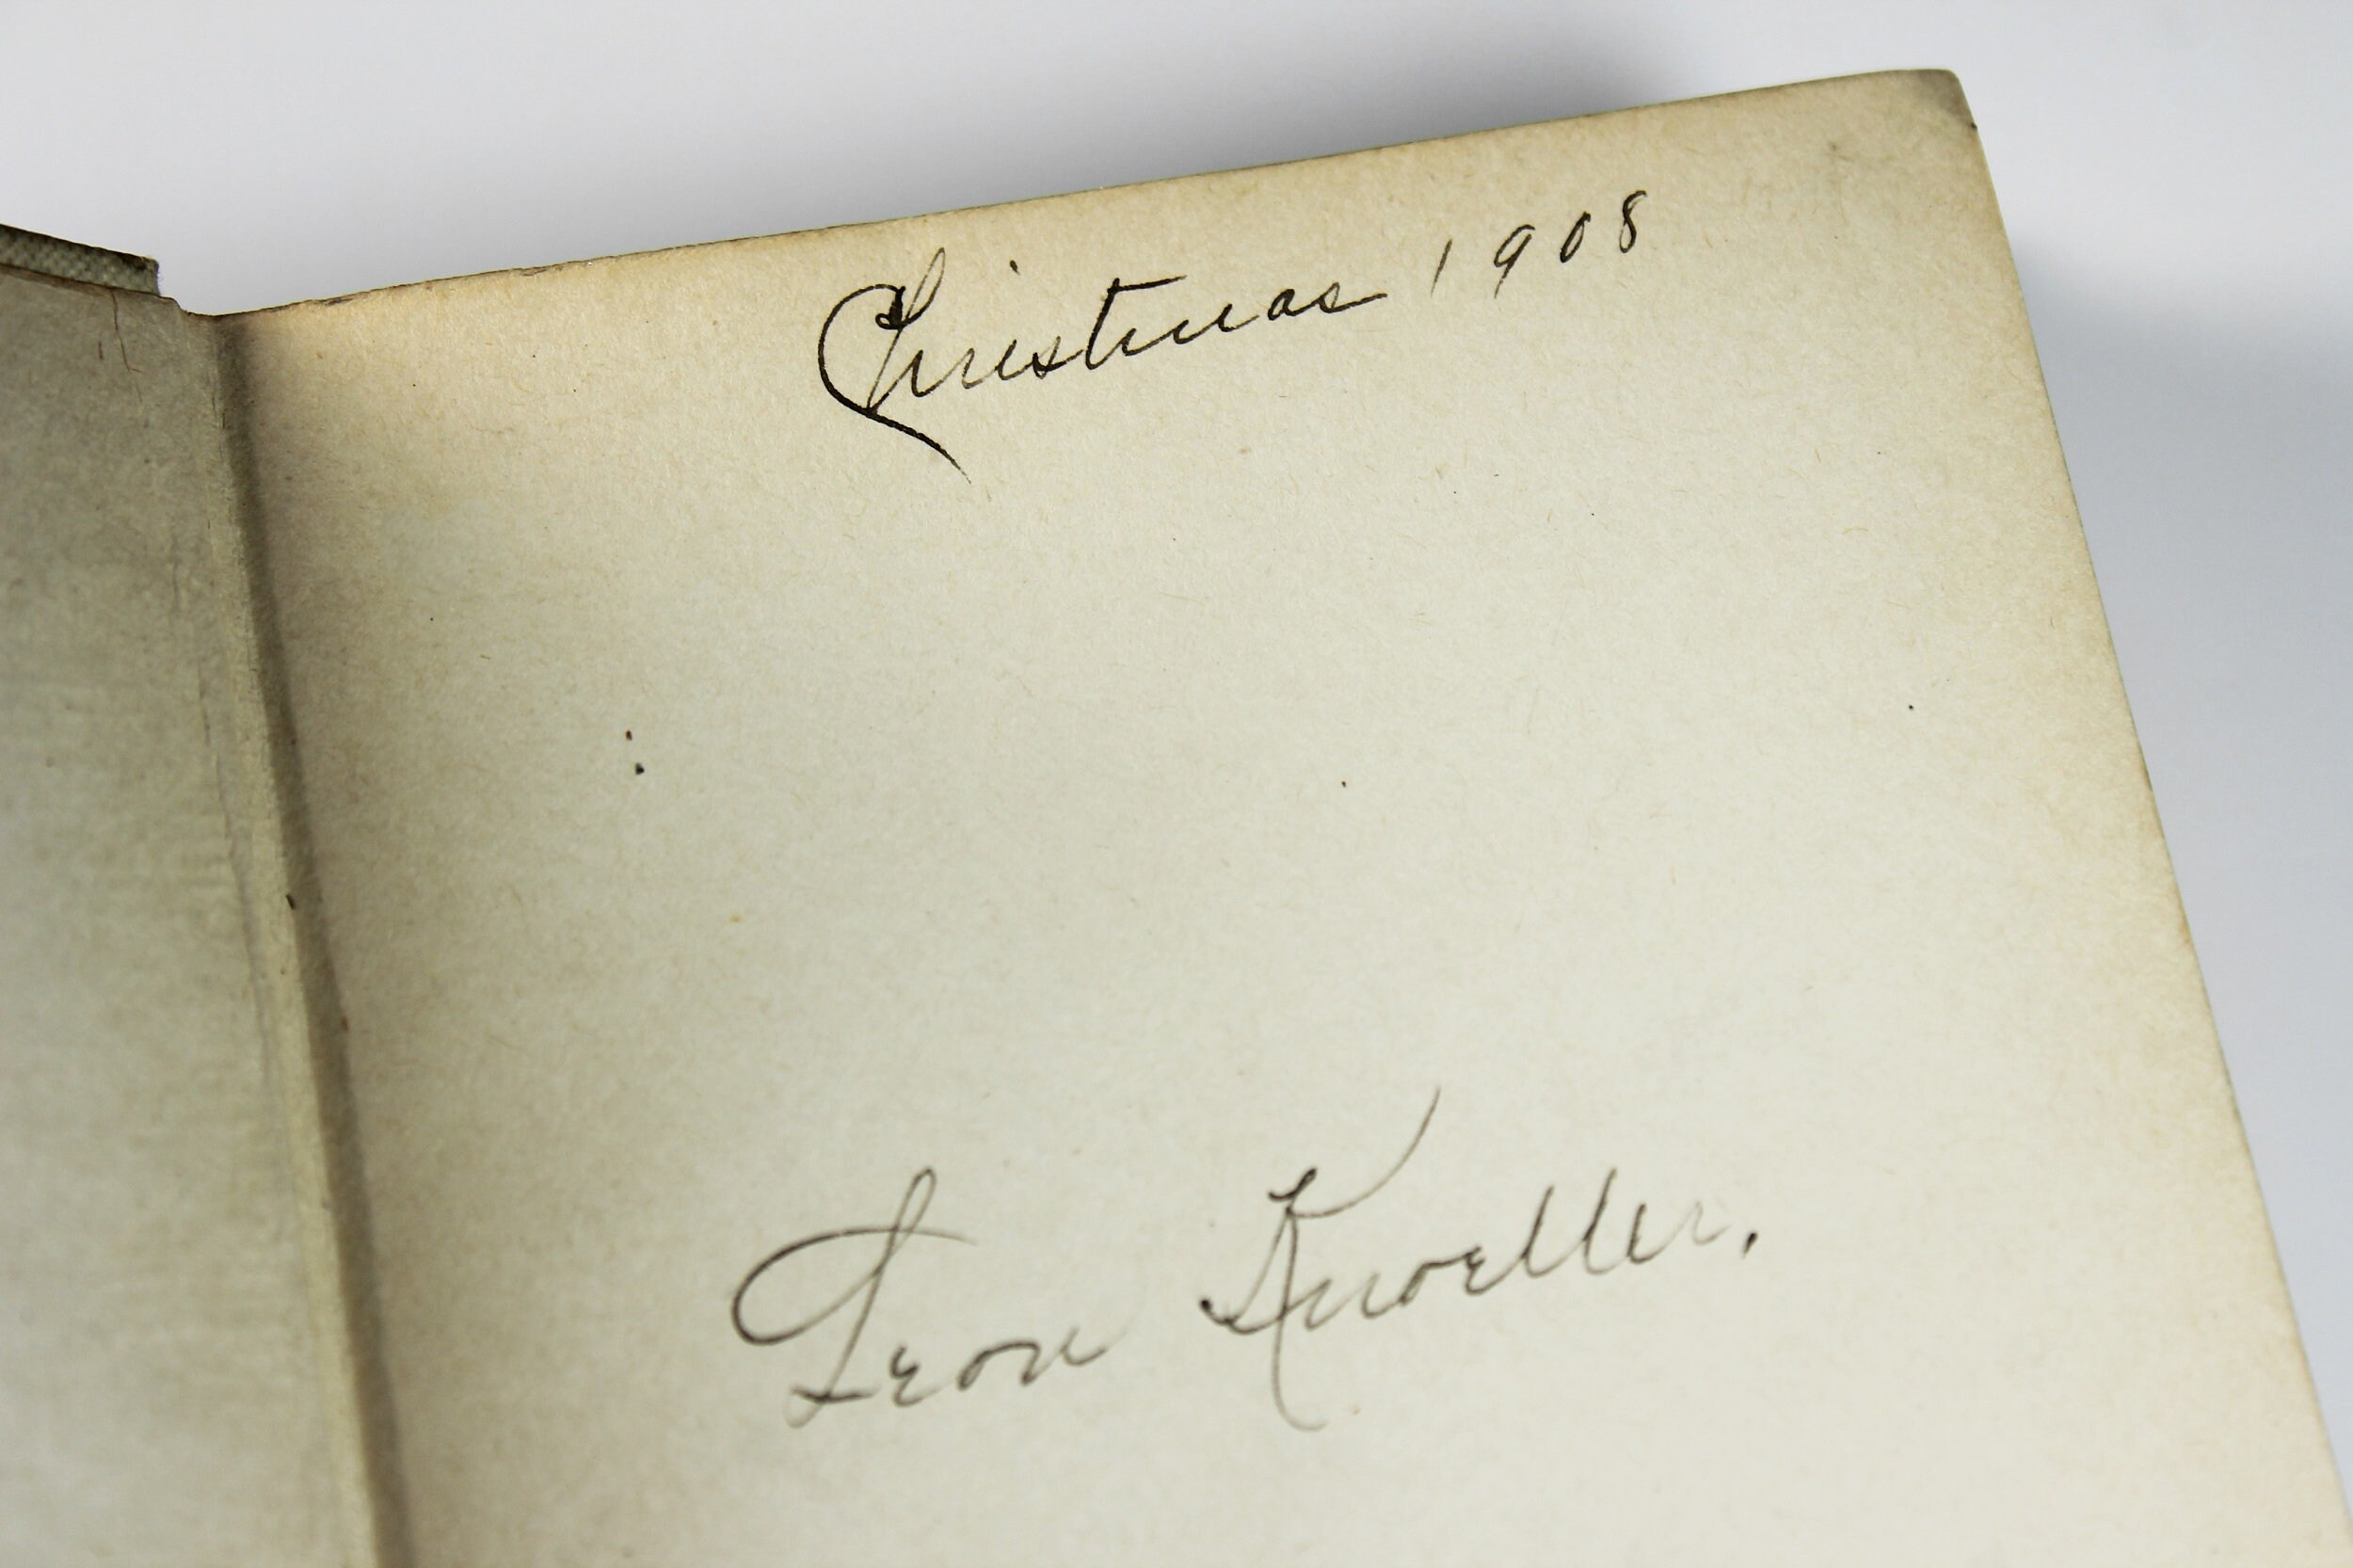 Christmas 1908
Leon Knoeller.